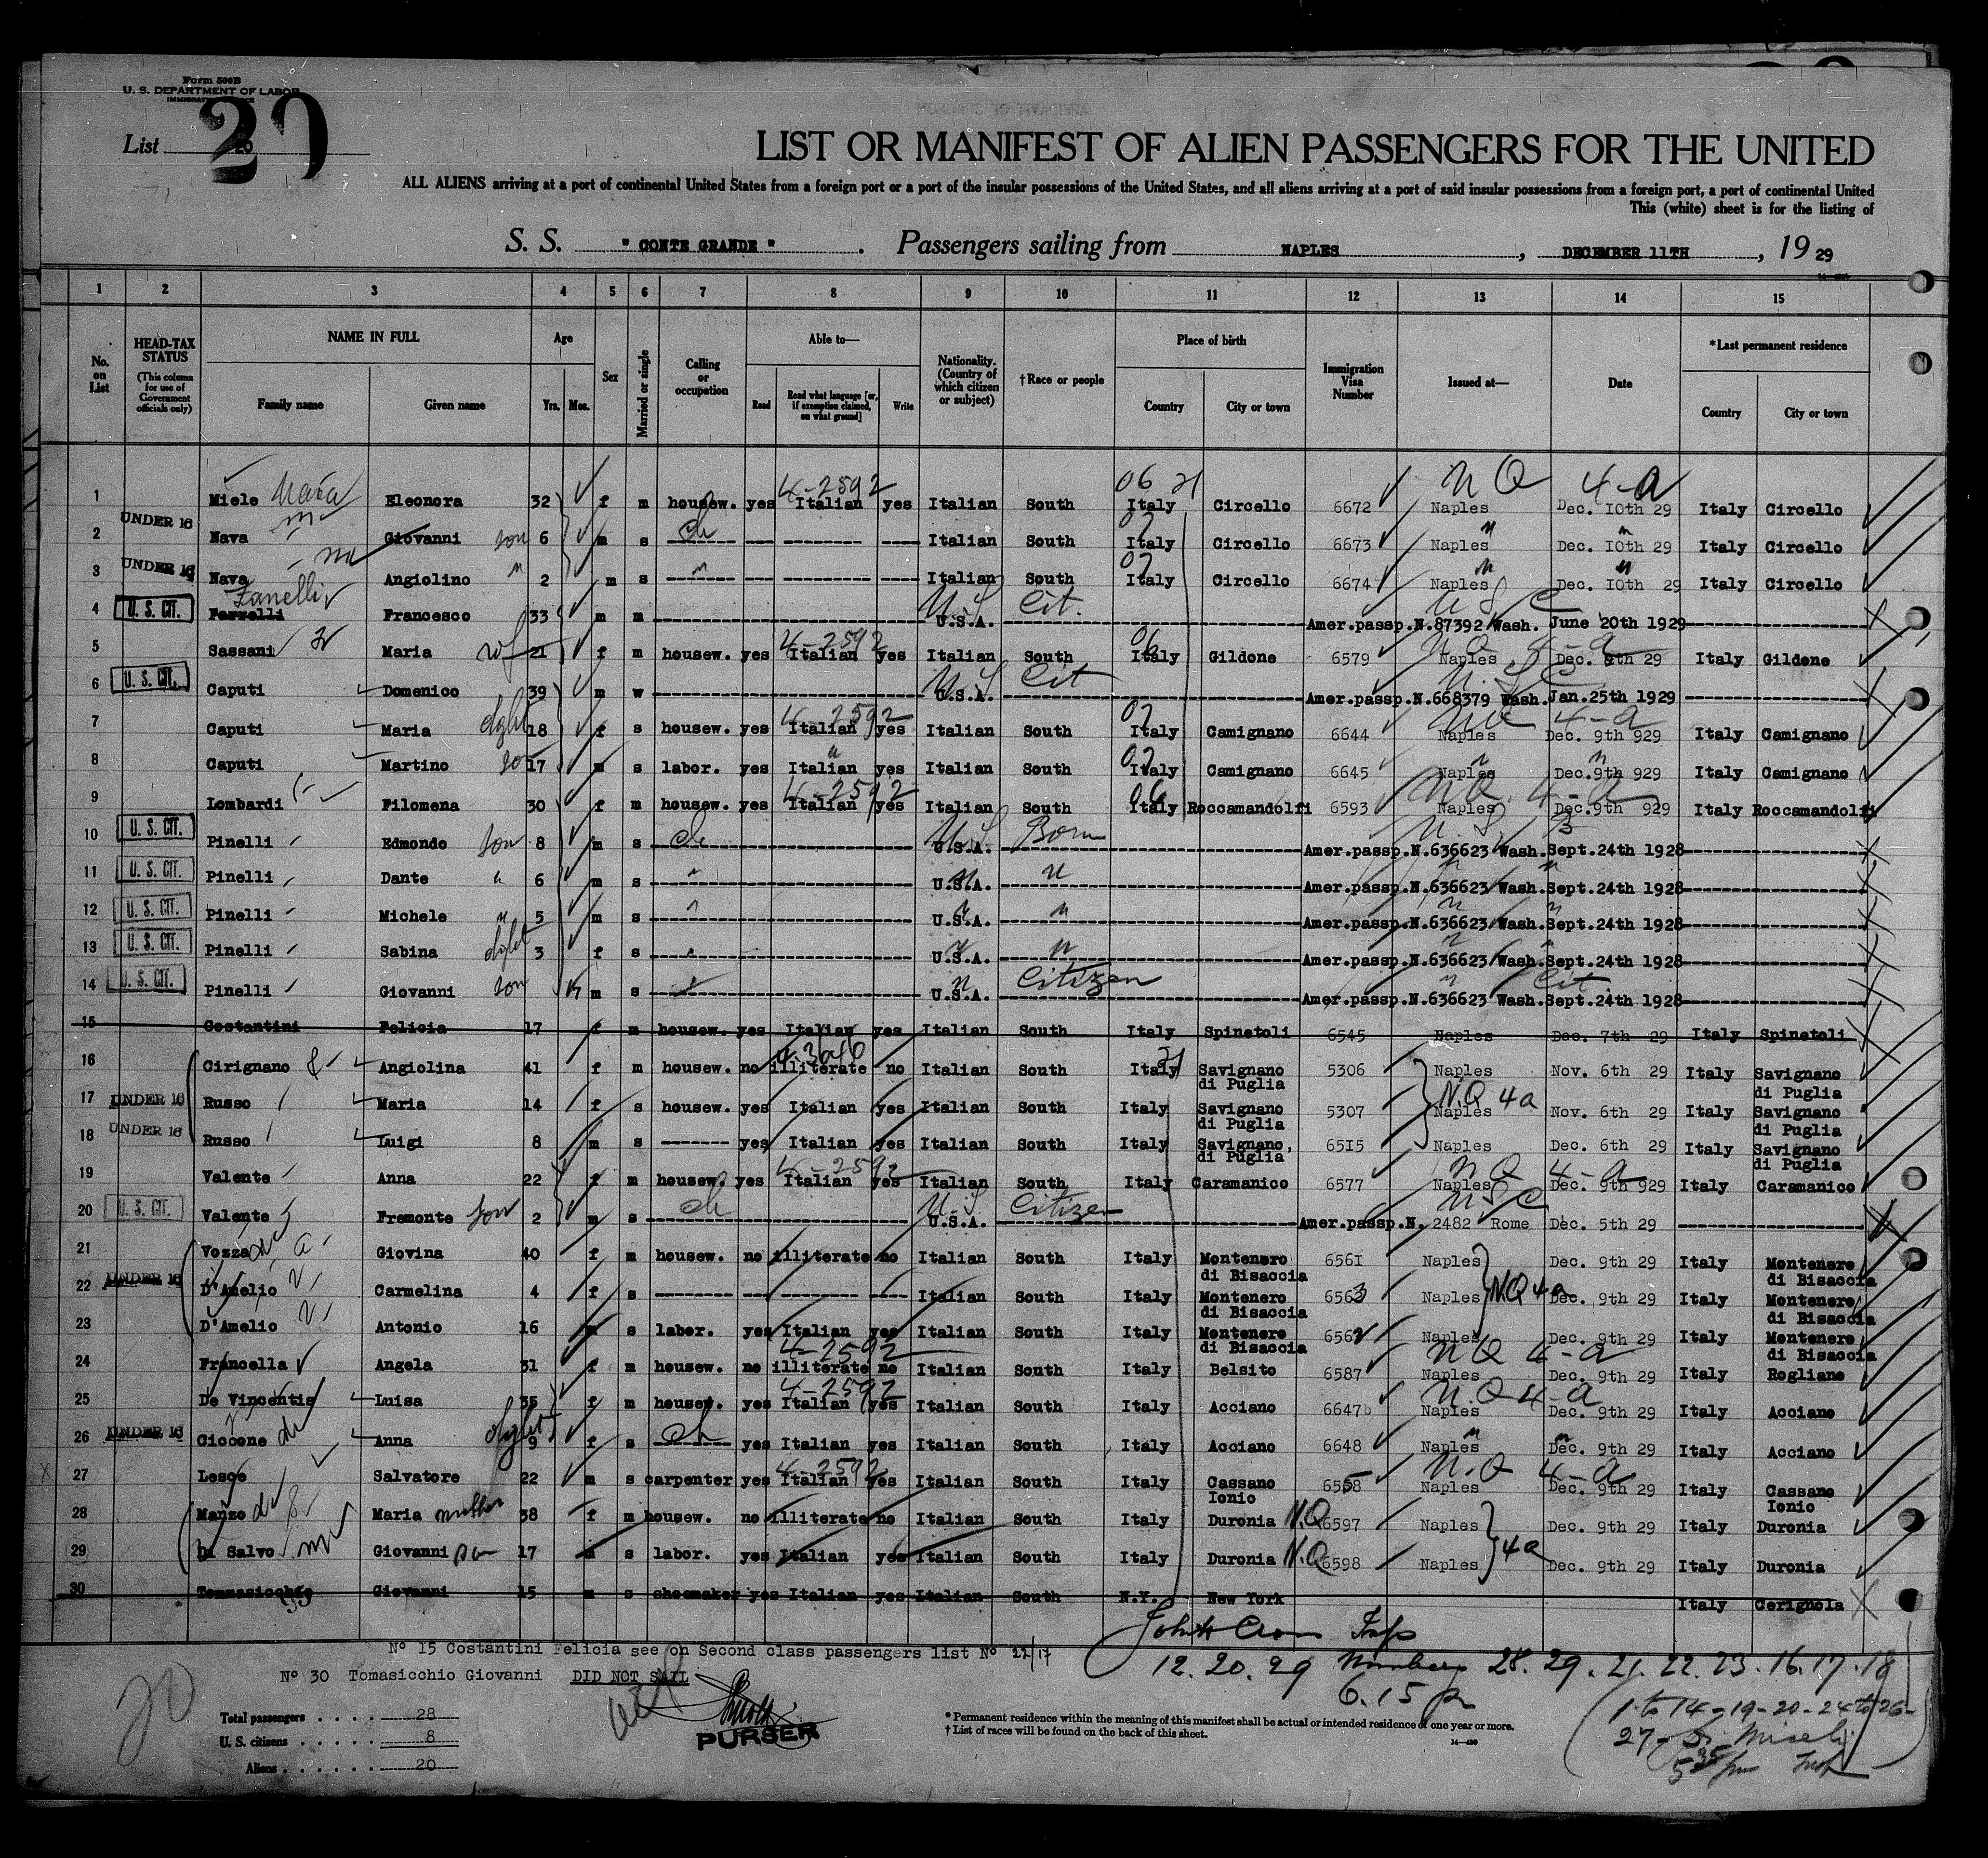 Form 500B
U. S. DEPARTMENT OF LABOR
List 20
LIST OR MANIFEST OF ALIEN PASSENGERS FOR THE UNITED
ALL ALIENS arriving at a port of continental United States from a foreign port or a port of the insular possessions of the United States, and all aliens arriving at a port of said insular possessions from a foreign port, a port of continental United
This (white) sheet is for the listing of
S. S. " CONTE GRANDE " . Passengers sailing from NAPLES , DECEMBER 11TH , 19 29
1 2 3 4 5 6 7 8 9 10 11 12 13 14 15
No. on List HEAD-TAX STATUS (This column for use of Government officials only) NAME IN FULL Family name Given name Age Yrs. Mos. Sex Married or single Calling or occupation Able to— Read Read what language [or, if exemption claimed, on what ground] Write Nationality. (Country of which citizen or subject) †Race or people Place of birth Country City or town Immigration Visa Number Issued at— Date *Last permanent residence Country City or town
1 Miele Nava Eleonora 32 f m housew. yes 4-2592 Italian yes Italian South 06 21 Italy Circello 6672 N Q Naples 4-a Dec. 10th 29 Italy Circello
2 UNDER 16 Nava Giovanni son 6 m s ch Italian South 07 Italy Circello 6673 Naples Dec. 10th 29 Italy Circello
3 UNDER 16 Nava Angiolino 2 m s Italian South 07 Italy Circello 6674 Naples Dec. 10th 29 Italy Circello
4 U. S. CIT. Zanelli Francesco 33 m m U.S. U.S.A. Cit. Amer.passp.N.87392 Wash. June 20th 1929
5 Sassani Maria wf 21 f m housew. yes 4-2592 Italian yes Italian South 06 Italy Gildone 6579 Naples Dec. 9th 29 Italy Gildone
6 U. S. CIT. Caputi Domenico 39 m w U.S. U.S.A. Cit Amer.passp.N.668379 Wash. Jan.25th 1929
7 Caputi Maria dght 18 f s housew. yes 4-2592 Italian yes Italian South 07 Italy Camignano 6644 Naples 4-a Dec. 9th 929 Italy Camignano
8 Caputi Martino son 17 m s labor. yes Italian yes Italian South 07 Italy Camignano 6645 Naples Dec.9th 929 Italy Camignano
9 Lombardi Filomena 30 f m housew. yes 4-2592 Italian yes Italian South 06 Italy Roccamandolfi 6593 NQ Naples 4-a Dec.9th 929 Italy Roccamandolfi
10 U. S. CIT. Pinelli Edmondo son 8 m s ch U.S. U.S.A. Born Amer.passp.N.636623 Wash.Sept.24th 1928
11 U. S. CIT. Pinelli Dante 6 m s U.S.A. Amer.passp.N.636623 Wash.Sept.24th 1928
12 U. S. CIT. Pinelli Michele 5 m s U.S.A. Amer.passp.N.636623 Wash.Sept.24th 1928
13 U. S. CIT. Pinelli Sabina dght 3 f s U.S.A. Amer.passp.N.636623 Wash.Sept.24th 1928
14 U. S. CIT. Pinelli Giovanni son m s U.S.A. Citizen Amer.passp.N.636623 Wash.Sept.24th 1928 Cit.
15 Costantini Felicia 17 f m housew. yes Italian yes Italian South Italy Spinetoli 6545 Naples Dec. 7th 29 Italy Spinetoli
16 Cirignano Angiolina 41 f m housew. no illiterate no Italian South 21 Italy Savignano di Puglia 5306 Naples Nov. 6th 29 Italy Savignano di Puglia
17 UNDER 16 Russo Maria 14 f s housew. yes Italian yes Italian South Italy Savignano di Puglia 5307 Naples N.Q 4a Nov. 6th 29 Italy Savignano di Puglia
18 UNDER 16 Russo Luigi 8 m s yes Italian yes Italian South Italy Savignano, di Puglia 6515 Naples Dec. 6th 29 Italy Savignano di Puglia
19 Valente Anna 22 f m housew. yes 4-2592 Italian yes Italian South Italy Caramanico 6577 NQ Naples 4-a Dec. 9th 929 Italy Caramanico
20 U. S. CIT. Valente Fremonte son 2 m s ch U.S. U.S.A. Citizen Amer.passp.N. 2482 Rome U.S.C Dec. 5th 29
21 Vozza Giovina 40 f m housew. no illiterate no Italian South Italy Montenero di Bisaccia 6561 Naples Dec. 9th 29 Italy Montenero di Bisaccia
22 UNDER 16 D'Amelio Carmelina 4 f s Italian South Italy Montenero di Bisaccia 6563 Naples NQ 4a Dec. 9th 29 Italy Montenero di Bisaccia
23 D'Amelio Antonio 16 m s labor. yes Italian yes Italian South Italy Montenero di Bisaccia 6562 Naples Dec. 9th 29 Italy Montenero di Bisaccia
24 Francella Angela 31 f m housew. no 4-2592 illiterate no Italian South Italy Belsito 6587 NQ Naples 4-a Dec. 9th 29 Italy Rogliano
25 De Vincentis Luisa 35 f m housew. yes 4-2592 Italian yes Italian South Italy Acciano 6647 N.Q 4-a Naples Dec. 9th 29 Italy Acciano
26 UNDER 16 Ciccone Anna dght 9 f s ch yes Italian yes Italian South Italy Acciano 6648 Naples Dec. 9th 29 Italy Acciano
27 Lesce Salvatore 22 m s carpenter yes 4-2592 Italian yes Italian South Italy Cassano Ionio 6558 N.Q Naples 4-a Dec. 9th 29 Italy Cassano Ionio
28 Manzo Maria mother 38 f m housew. no illiterate no Italian South Italy Duronia N.Q 6597 Naples Dec. 9th 29 Italy Duronia
29 Di Salvo Giovanni son 17 m s labor. yes Italian yes Italian South Italy Duronia N.Q 6598 Naples 4a Dec. 9th 29 Italy Duronia
30 Tommasicchio Giovanni 15 m s shoemaker yes Italian yes Italian South N.Y. New York Italy Cerignola
Nº 15 Costantini Felicia see on Second class passengers list Nº 22/17
Nº 30 Tomasicchio Giovanni DID NOT SAIL
20
PURSER
12.20.29 Numbers 28.29.21.22.23.16.17.18
6.15 p
1 to 14-19-20-24 to 26-
27-
Total passengers . . . . 28
U. S. citizens . . . . . 8
Aliens . . . . . 20
* Permanent residence within the meaning of this manifest shall be actual or intended residence of one year or more.
† List of races will be found on the back of this sheet.